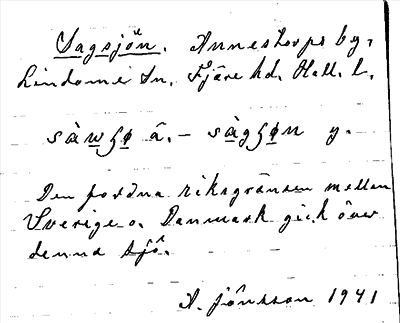 Sagsjön. Annestorps by,
Lindome sn. Fjäre hd. Hall. l.
sàwʃø â. – sàgʃøn y.
Den fordna riksgränsen mellan
Sverige o. Danmark gick över
denna sjö.
A. Jönsson 1941